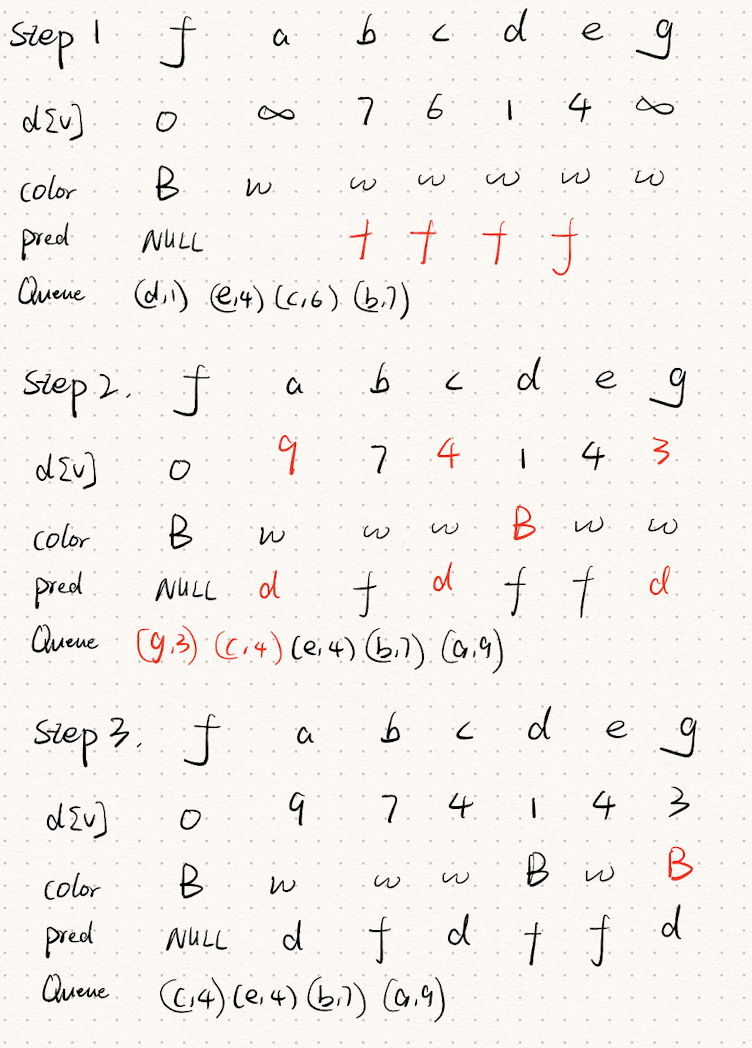 Step 1 f a b c d e g
d[v] 0 ∞ 7 6 1 4 ∞
color B w w w w w w
pred NULL f f f f
Queue (d,1) (e,4) (c,6) (b,7)
Step 2. f a b c d e g
d[v] 0 9 7 4 1 4 3
color B w w w B w w
pred NULL d f d f f d
Queue (g,3) (c,4) (e,4) (b,7) (a,9)
Step 3. f a b c d e g
d[v] 0 9 7 4 1 4 3
color B w w w B w B
pred NULL d f d f f d
Queue (c,4) (e,4) (b,7) (a,9)